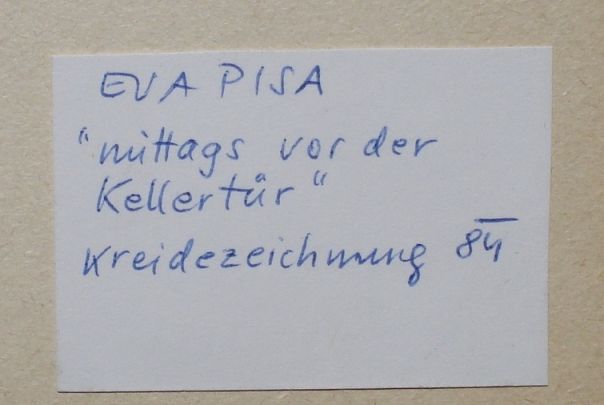 EVA PISA
"mittags vor der
Kellertür"
Kreidezeichnung 84